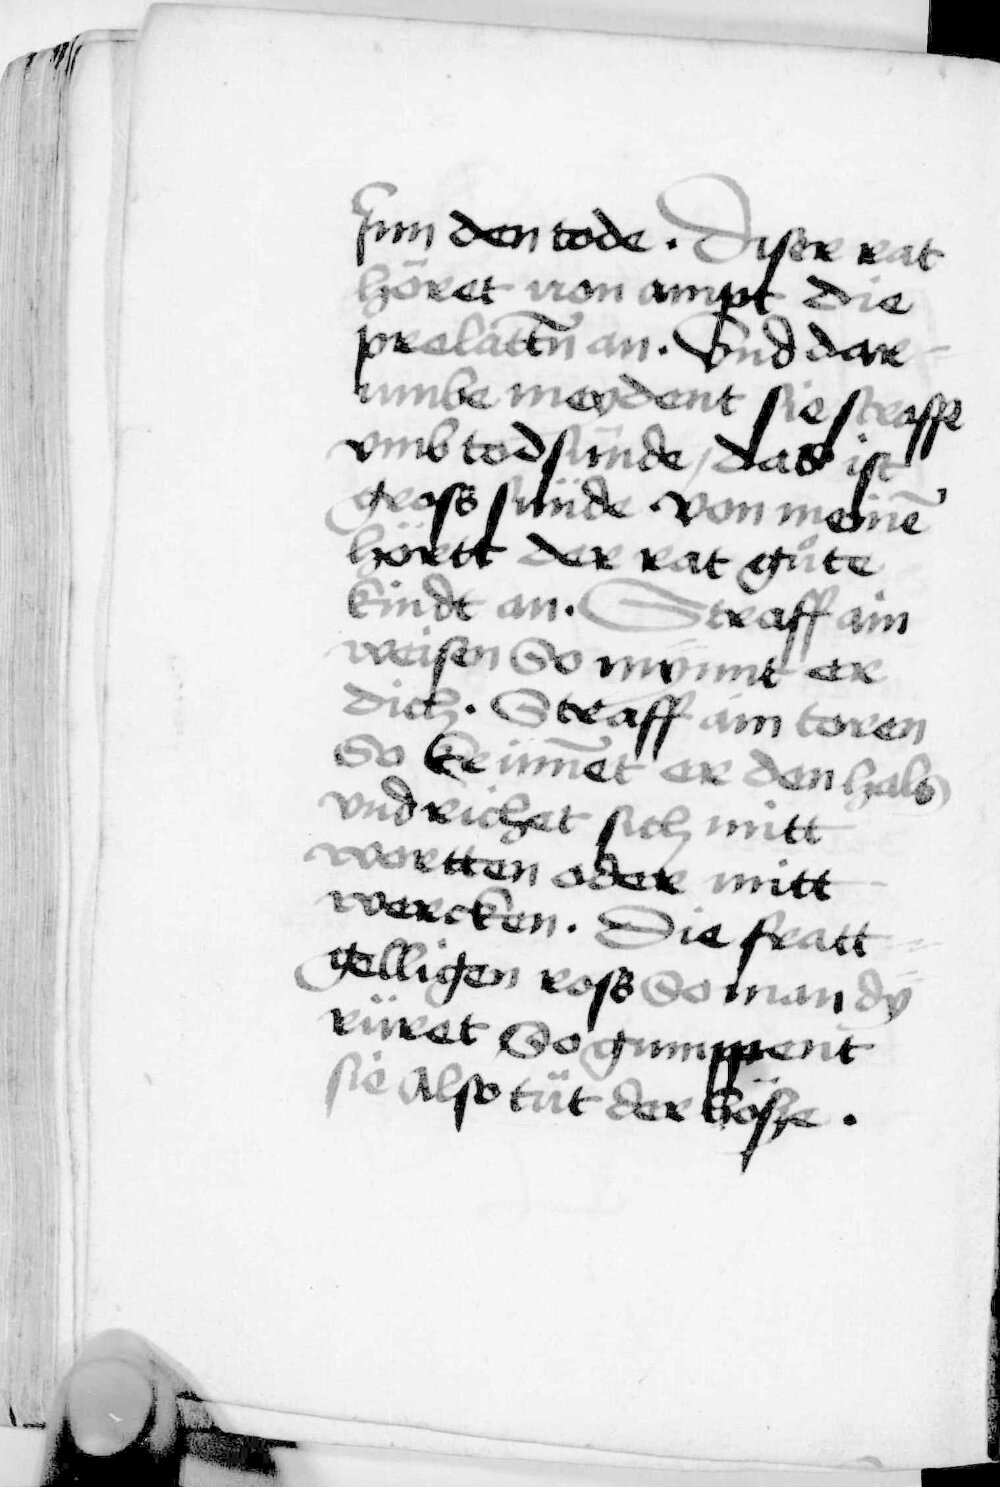 Jnn den tode. Diser rat
höret von ampt die
prelattñ an. Vnd dar-
umbe meydent sie straffe
vmb todsünde / das ist
gross sünde. von meinē
hörtt der rat gůte
kindt an. Straff ain
weisen So mynnt er
dich. Straff ain toren
So krüm̄et er den hals
vnd richet sich mitt
wortten oder mitt
wercken. Die fratt-
gelligen ross So man dÿ
rüret So gumppent
sie Also tüt der böse.